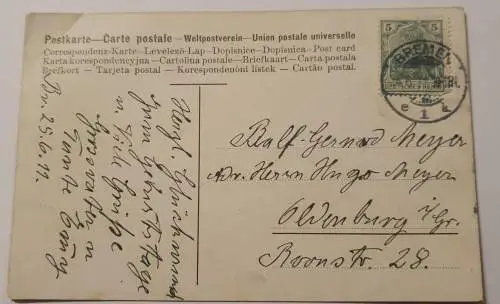 Postkarte—Carte postale — Weltpostverein—Union postale universelle
Correspondenz-Karte—Levelező-Lap—Dopisnice—Dopisnica—Post card
Karta korespondencyjna—Cartolina postale—Briefkaart—Carta postala
Brefkort — Tarjeta postal — Korespondenóni lístek — Cartão postal.
5 5
BREMEN
e 1 k
Ralf-Gernod Meyer
Adr. Herrn Hugo Meyer
Oldenburg i/Gr.
Roonstr. 28.
Herzl. Glückwunsch
zum Geburtstage
u. viele Grüße
Grossvater u
Tante
Br. 25.6.11.